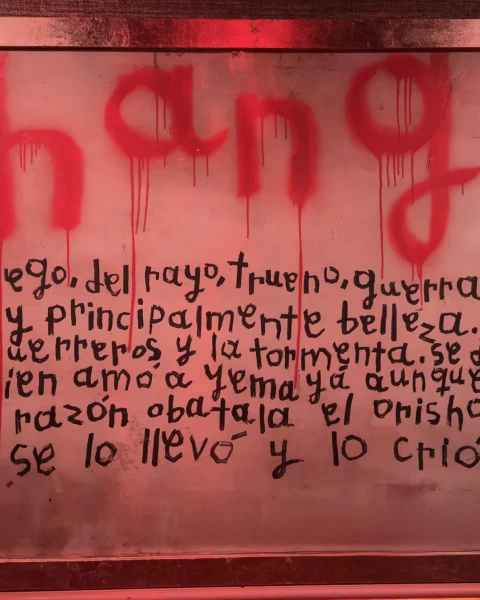 hang
ego, del rayo, trueno, guerra
y principalmente belleza.
uerreros y la tormenta. se d
ien amó a yemayá aunque
razón obatala el orisho
se lo llevó y lo crió